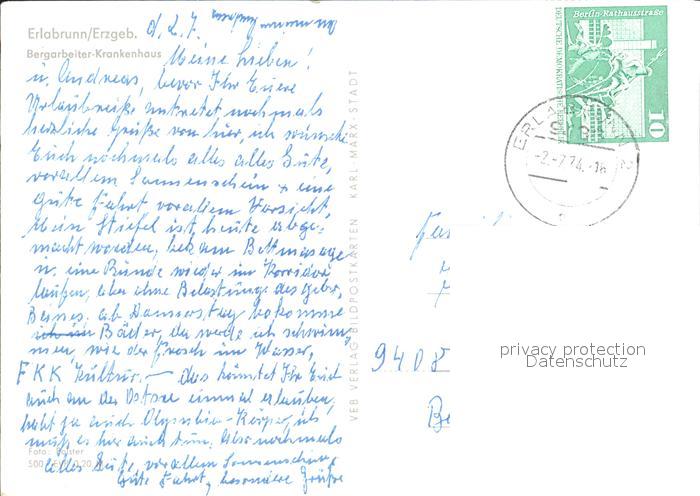 Erlabrunn/Erzgeb.
Bergarbeiter-Krankenhaus
d. 2.7.
Meine Lieben!
u. Andreas, bevor Ihr Eure
Urlaubreise antretet nochmals
herzliche Grüße von hier, ich wünsche
Euch nochmals alles alles Gute,
vorallem Sonnenschein + eine
gute Fahrt vorallem Vorsicht,
Mein Stiefel ist heute abge-
macht worden, bekam Bettmassage
u. eine Runde wieder im Korridor
laufen, aber ohne Belastung des gebr.
Beines. ab Donnerstag bekomme
ich Bäder, da werde ich schwim
men, wie der Frosch im Wasser,
FKK Kultur. — das könntet Ihr Euch
auch an der Ostsee einmal erlauben,
habt ja auch Olympia-Körper, ich
muß es hier auch tun. Also nochmals
alles Gute, vor allem Sonnenschein,
Gute Fahrt, besondere Grüße
Foto:
VEB VERLAG BILDPOSTKARTEN KARL-MARX-STADT
Berlin-Rathausstraße
DEUTSCHE DEMOKRATISCHE REPUBLIK
10
-2.-7.74.-16
9408
Be
privacy protection
Datenschutz